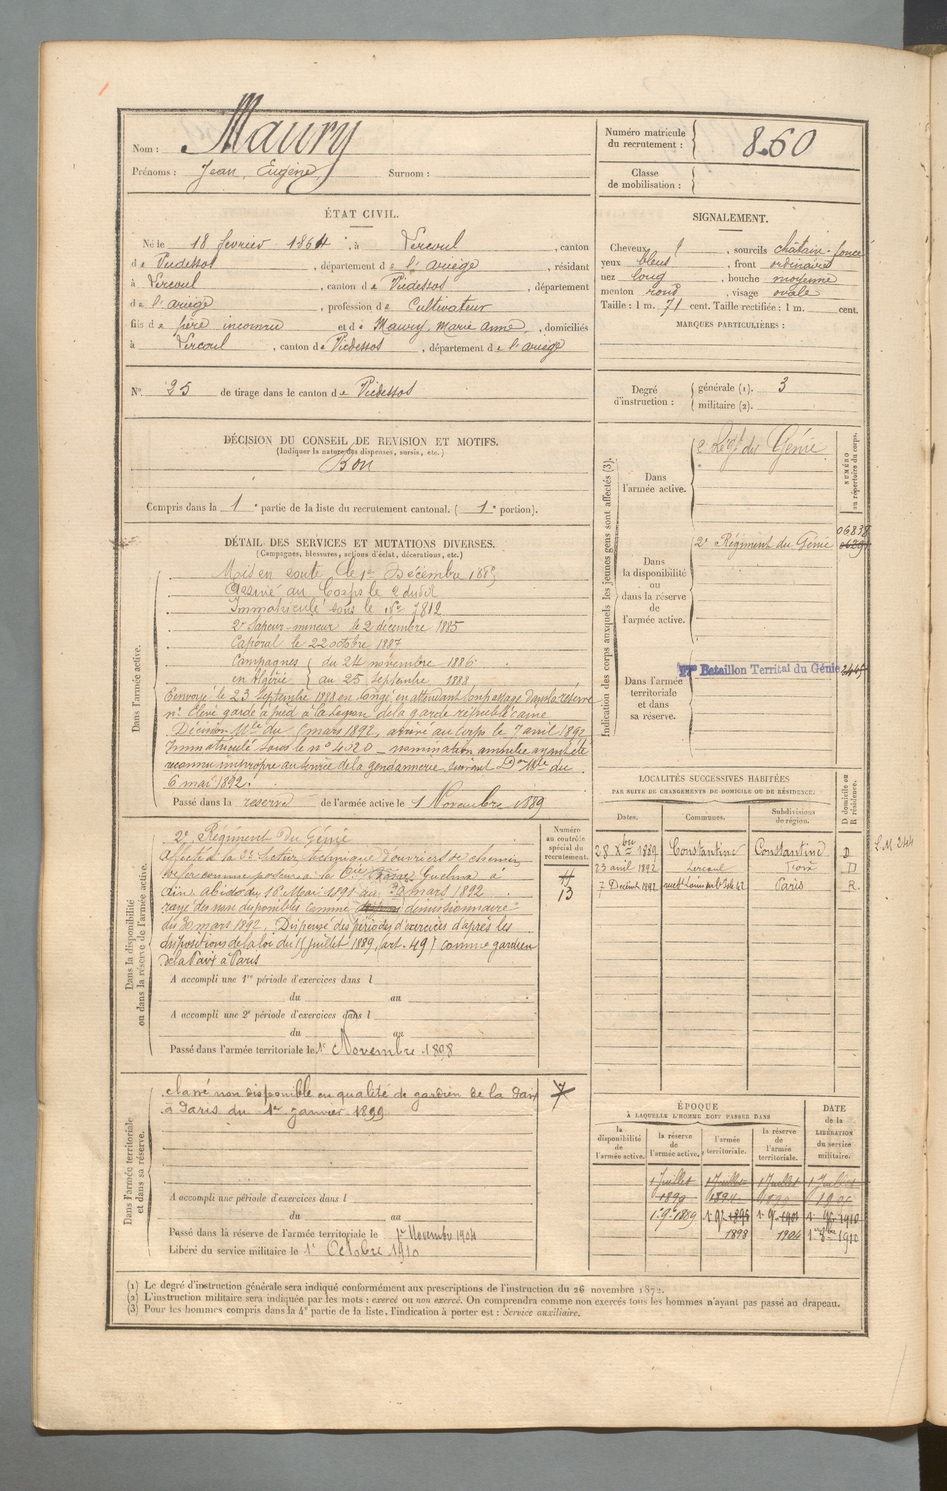 Nom : Maury
Prénoms : Jean, Eugène Surnom :
ÉTAT CIVIL.
Né le 18 février 1864, à Lercoul, canton
de Vicdessos, département de l'ariège, résidant
à Lercoul, canton de Vicdessos, département
de l'ariège, profession de Cultivateur
fils de père inconnu et de Maury, Marie Anne, domiciliés
à Lercoul, canton de Vicdessos, département de l'ariège
N° 25 de tirage dans le canton de Vicdessos
DÉCISION DU CONSEIL DE REVISION ET MOTIFS.
(Indiquer la nature des dispenses, sursis, etc.)
Bon
Compris dans la 1e partie de la liste du recrutement cantonal. (1e portion).
DÉTAIL DES SERVICES ET MUTATIONS DIVERSES.
(Campagnes, blessures, actions d'éclat, décorations, etc.)
Dans l'armée active.
Mis en route le 1er Décembre 1885
Arrivé au Corps le 2 dudit
Immatriculé sous le N° 7812
2e Sapeur-mineur le 2 décembre 1885
Caporal le 22 octobre 1887
Campagnes { du 24 novembre 1886
en Algérie { au 25 Septembre 1888
Renvoyé le 23 Septembre 1888 en congé en attendant son passage dans la réserve
né Élève garde à pied à la Légion de la garde républicaine
Décision Mlle du mars 1892, arrivé au Corps le 7 avril 1892
Immatriculé sous le n° 4320 nomination annulée ayant été
reconnu impropre au service de la gendarmerie suivant Don Mlle du
6 mai 1892.
Passé dans la reserve de l'armée active le 1 Novembre 1889
Dans la disponibilité
ou dans la réserve de l'armée active.
Numéro
au contrôle
spécial du
recrutement.
2e Régiment du Génie
Affecté à la Son technique d'ouvriers de chemin
de fer comme poseur à la Cie Guelma à
du 16 Mai 1891 au 30 mars 1892
rayé des non disponibles comme démissionnaire
du 30 mars 1892. Dispensé des périodes d'exercices d'après les
dispositions de la loi du 15 juillet 1889, (art. 49) comme gardien
de la Paix à Paris
13
A accompli une 1re période d'exercices dans l
du au
A accompli une 2e période d'exercices dans l
du au
Passé dans l'armée territoriale le 1er Novembre 1898
Dans l'armée territoriale
et dans sa réserve.
classé non disponible en qualité de gardien de la Paix
à Paris du 1er janvier 1899
7
A accompli une période d'exercices dans l
du au
Passé dans la réserve de l'armée territoriale le 1er Novembre 1904
Libéré du service militaire le 1er Octobre 1910
Numéro matricule
du recrutement : 860
Classe
de mobilisation :
SIGNALEMENT.
Cheveux, sourcils châtain-foncé
yeux bleus, front ordinaire
nez long, bouche moyenne
menton rond, visage ovale
Taille : 1 m. 71 cent. Taille rectifiée : 1 m. cent.
MARQUES PARTICULIÈRES :
Degré
d'instruction : { générale (1). 3
militaire (2).
Indication des corps auxquels les jeunes gens sont affectés (3).
NUMÉRO
au répertoire du corps.
Dans
l'armée active. 2e Régt du Génie
Dans
la disponibilité
ou
dans la réserve
de
l'armée active. 2e Régiment du Génie 06838
Dans l'armée
territoriale
et dans
sa réserve. Bataillon Territal du Génie 2445
LOCALITÉS SUCCESSIVES HABITÉES
PAR SUITE DE CHANGEMENTS DE DOMICILE OU DE RÉSIDENCE.
Dates. Communes. Subdivisions de région. D domicile ou R résidence.
28 Xbre 1889 Constantine Constantine D
23 avril 1892 Lercoul Foix D
7 Décembre 1892 Paris R.
S.M. 244
ÉPOQUE
À LAQUELLE L'HOMME DOIT PASSER DANS
DATE
de la
LIBÉRATION
du service
militaire.
la disponibilité de l'armée active. la réserve de l'armée active. l'armée territoriale. la réserve de l'armée territoriale.
1 Juillet 1 Juillet 1 Juillet 1 Juillet
1890
1 9e 1889 1 9e 1895 1 9e 1901 1910
1898 1904 1910
(1) Le degré d'instruction générale sera indiqué conformément aux prescriptions de l'instruction du 26 novembre 1872.
(2) L'instruction militaire sera indiquée par les mots : exercé ou non exercé. On comprendra comme non exercés tous les hommes n'ayant pas passé au drapeau.
(3) Pour les hommes compris dans la 4e partie de la liste, l'indication à porter est : Service auxiliaire.